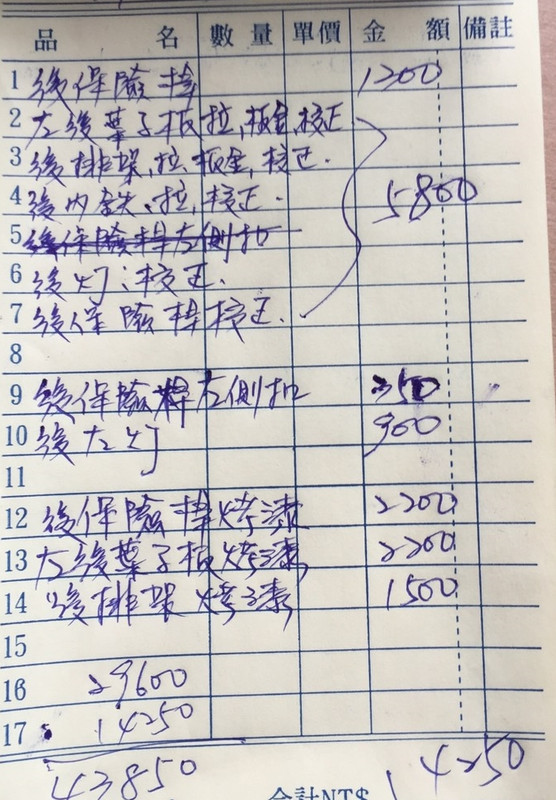 品名 數量 單價 金額 備註
1 後保險桿 1200
2 左後葉子板拉,板金,校正
3 後排架,拉,板金,校正.
4 後內鈑、拉,校正. 5800
5 後保險桿左側扣
6 後灯:校正.
7 後保險桿校正.
8
9 後保險桿左側扣 350
10 後左灯 900
11
12 後保險桿烤漆 2200
13 左後葉子板烤漆 2200
14 後排架烤漆 1500
15
16 29600
17 14250
43850 合計NT$ 14250